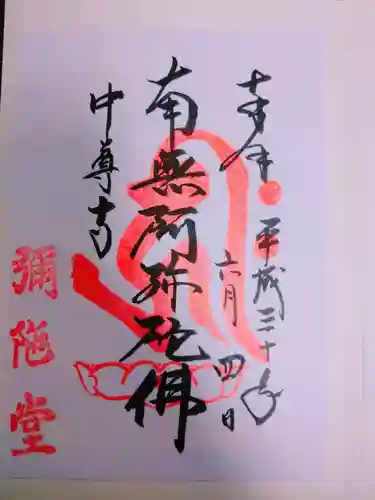 奉拝
平成三十年
六月四日
南無阿弥陀佛
中尊寺
彌陁堂